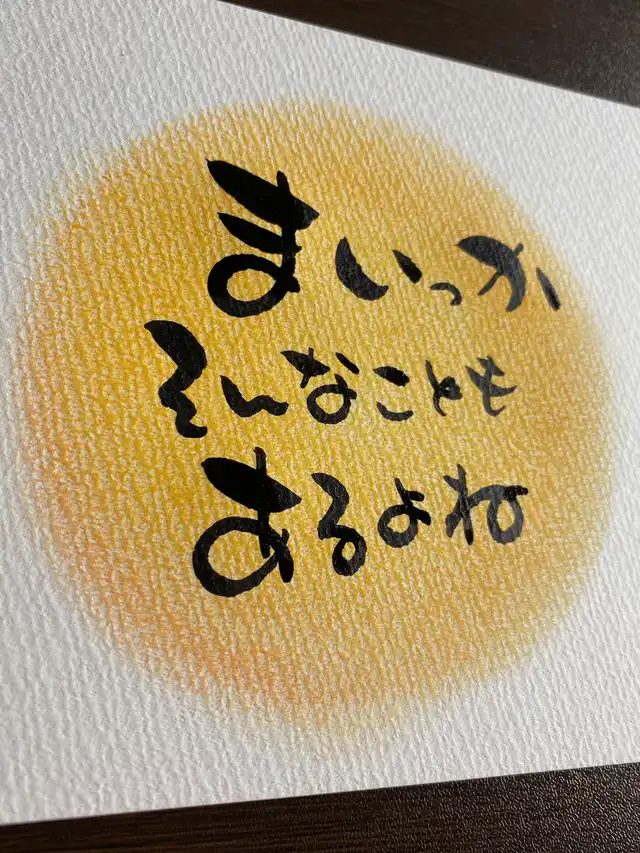 まいっか
そんなことも
あるよね